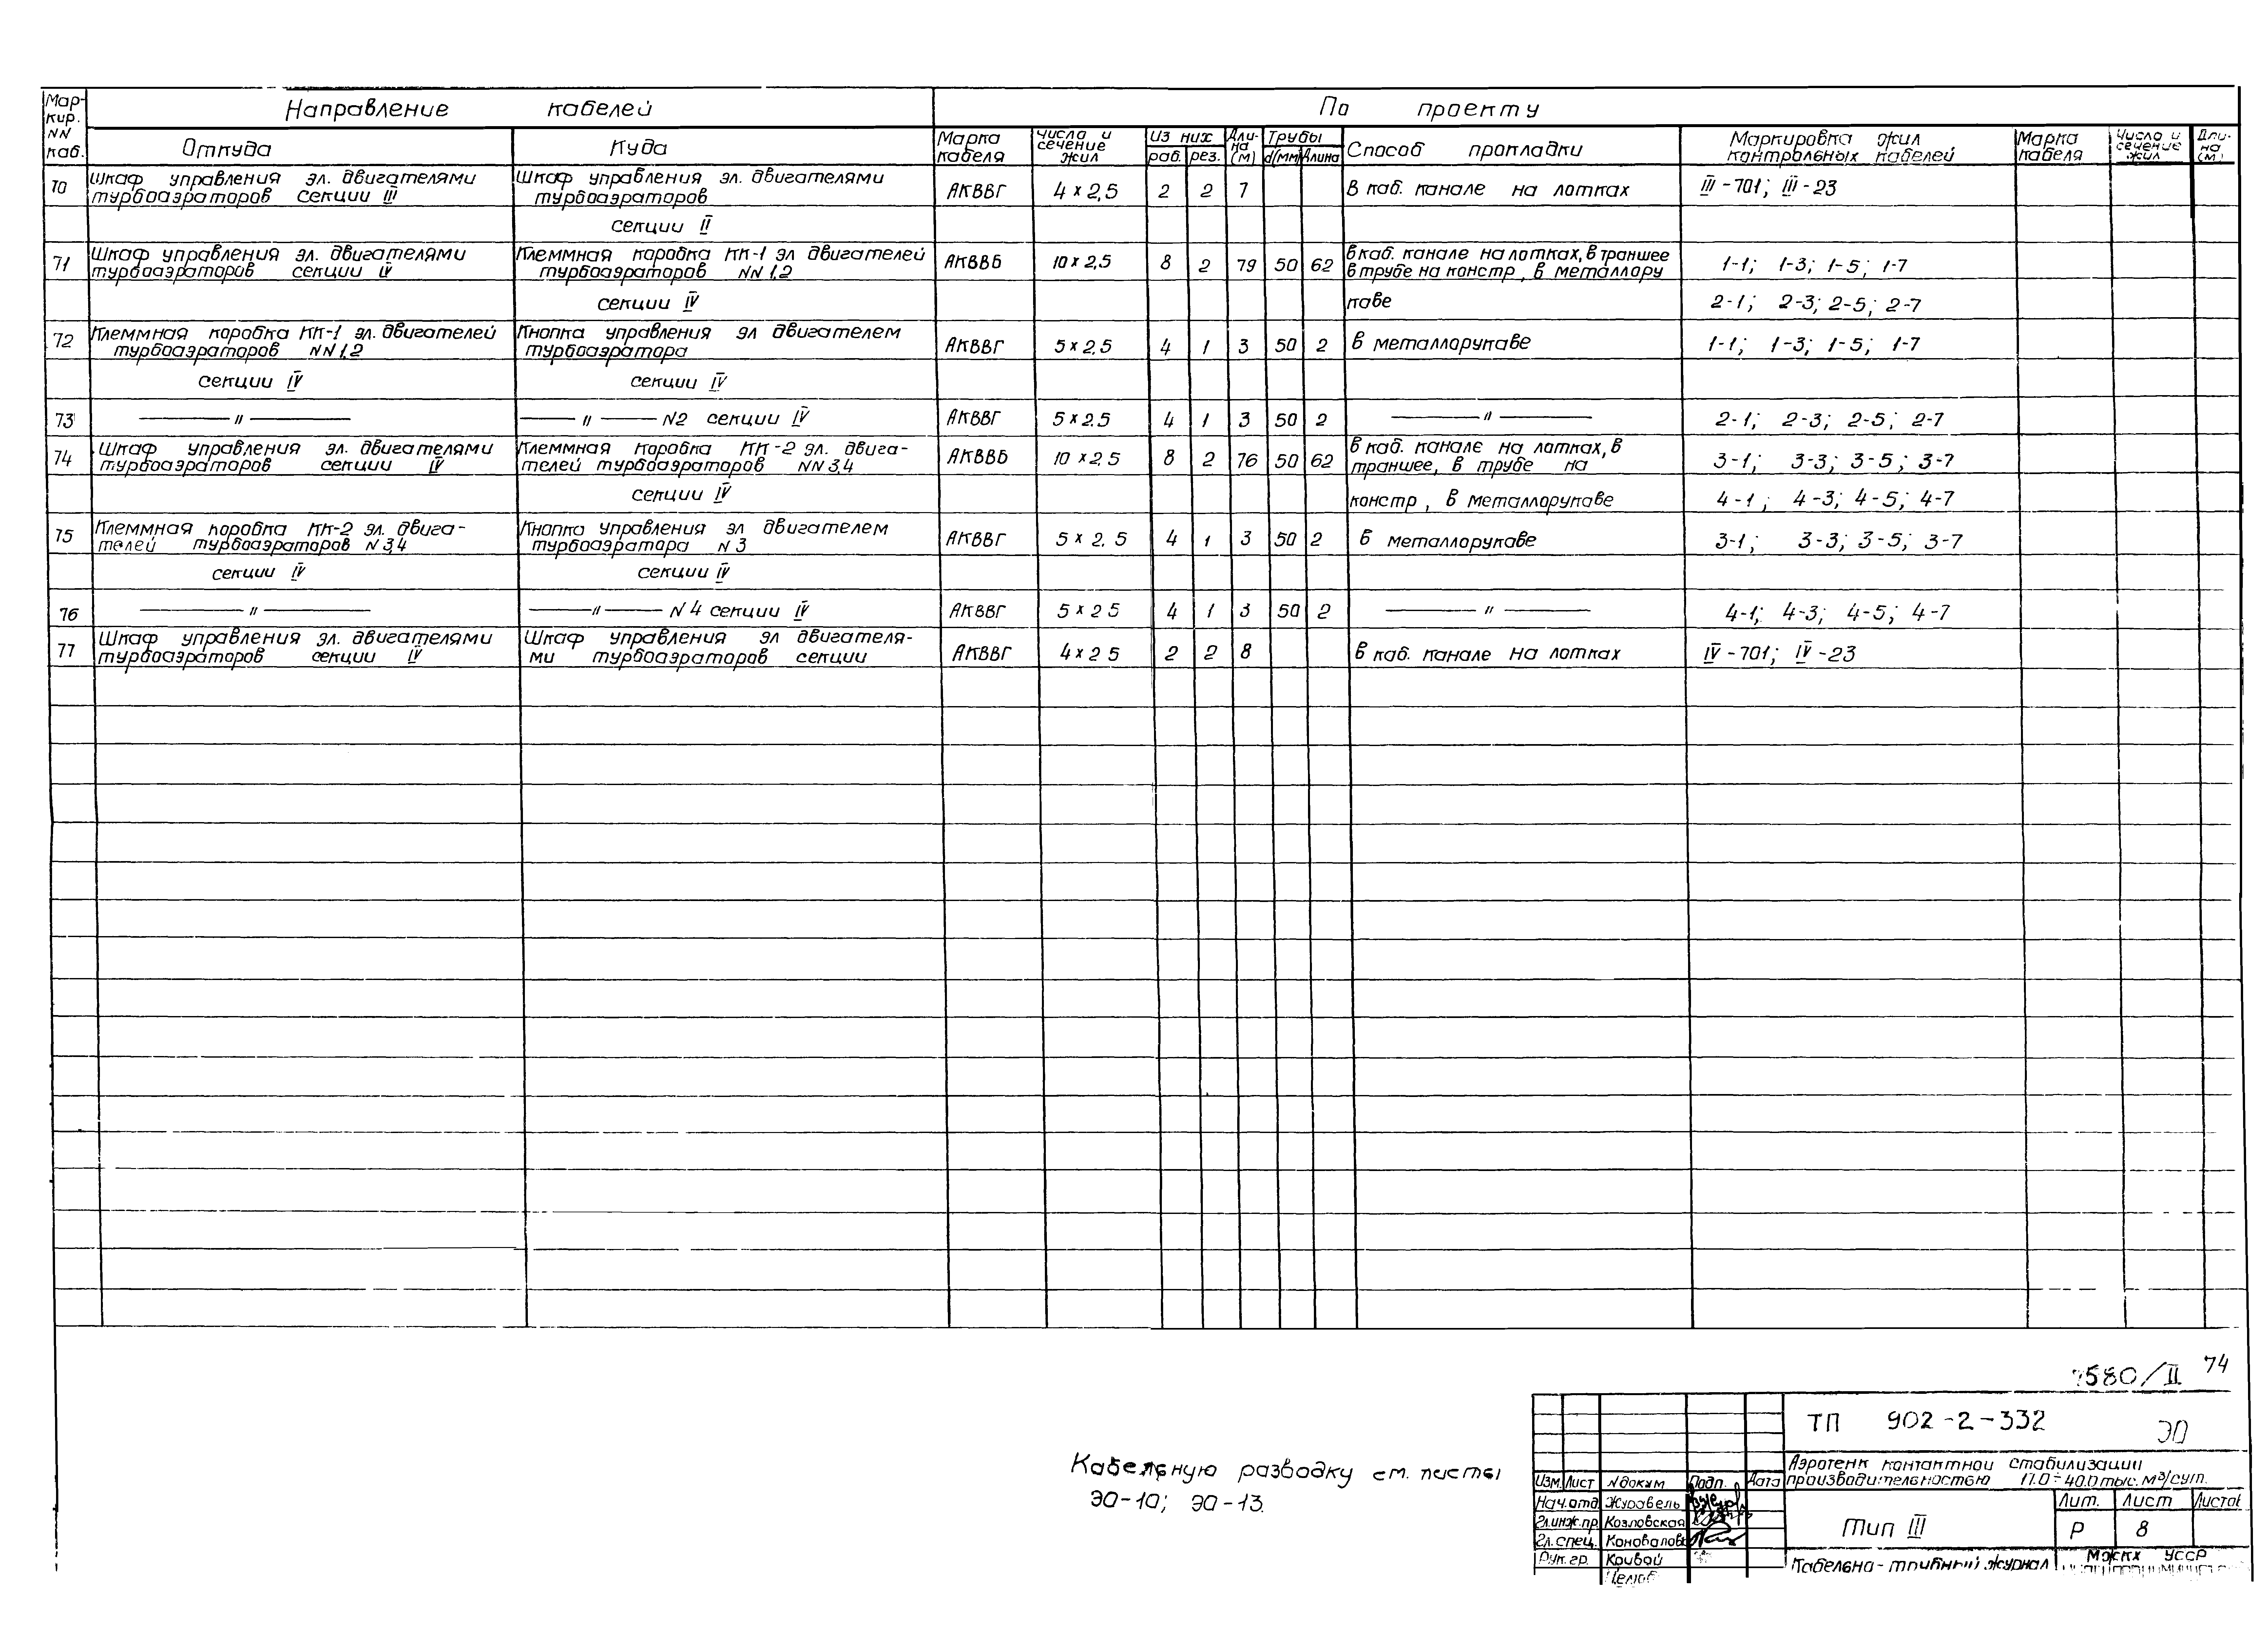 Мар-кир. NN каб. | Направление кабелей | По проекту
Откуда | Куда | Марка кабеля | Число и сечение жил | Из них раб. | рез. | Дли-на (м) | Трубы d(мм) | Длина | Способ прокладки | Маркировка жил контрольных кабелей | Марка кабеля | Число и сечение жил | Дли-на (м)
70 | Шкаф управления эл. двигателями турбоаэраторов секции III | Шкаф управления эл. двигателями турбоаэраторов | АКВВГ | 4 × 2,5 | 2 | 2 | 7 | В каб. канале на лотках | III-701; III-23
секции II
71 | Шкаф управления эл. двигателями турбоаэраторов секции IV | Клеммная коробка КК-1 эл двигателей турбоаэраторов NN 1,2 | АКВВБ | 10 × 2,5 | 8 | 2 | 79 | 50 | 62 | в каб. канале на лотках, в траншее в трубе на констр, в металлору | 1-1; 1-3; 1-5; 1-7
секции IV | каве | 2-1; 2-3; 2-5; 2-7
72 | Клеммная коробка КК-1 эл. двигателей турбоаэраторов NN 1,2 | Кнопка управления эл двигателем турбоаэратора | АКВВГ | 5 × 2,5 | 4 | 1 | 3 | 50 | 2 | в металлорукаве | 1-1; 1-3; 1-5; 1-7
секции IV | секции IV
73 | —— " —— | —— " —— N2 секции IV | АКВВГ | 5 × 2.5 | 4 | 1 | 3 | 50 | 2 | —— " —— | 2-1; 2-3; 2-5; 2-7
74 | Шкаф управления эл. двигателями турбоаэраторов секции IV | Клеммная коробка КК-2 эл. двига-телей турбоаэраторов NN 3,4 | АКВВБ | 10 × 2,5 | 8 | 2 | 76 | 50 | 62 | в каб. канале на лотках, в траншее, в трубе на | 3-1; 3-3; 3-5; 3-7
секции IV | констр, в металлорукаве | 4-1; 4-3; 4-5; 4-7
75 | Клеммная коробка КК-2 эл. двига-телей турбоаэраторов N 3,4 | Кнопка управления эл двигателем турбоаэратора N 3 | АКВВГ | 5 × 2,5 | 4 | 1 | 3 | 50 | 2 | В металлорукаве | 3-1; 3-3; 3-5; 3-7
секции IV | секции IV
76 | —— " —— | —— " —— N 4 секции IV | АКВВГ | 5 × 2 5 | 4 | 1 | 3 | 50 | 2 | —— " —— | 4-1; 4-3; 4-5; 4-7
77 | Шкаф управления эл. двигателями турбоаэраторов секции IV | Шкаф управления эл двигателя-ми турбоаэраторов секции | АКВВГ | 4 × 2 5 | 2 | 2 | 8 | в каб. канале на лотках | IV-701; IV-23
7580/II 74
Кабельную разводку см. листы
ЭО-10; ЭО-13.
ТП 902-2-332 ЭО
Аэротенк контактной стабилизации
производительностью 17.0÷40.0 тыс. м³/сут.
Изм. Лист N докум Подп. Дата
Нач.отд. Журавель
Гл.инж.пр. Козловская
Гл.спец. Коновалов
Рук.гр. Кривой
Тип III
Лит. Лист Листов
Р 8
Кабельно-трубный журнал
МЖКХ УССР